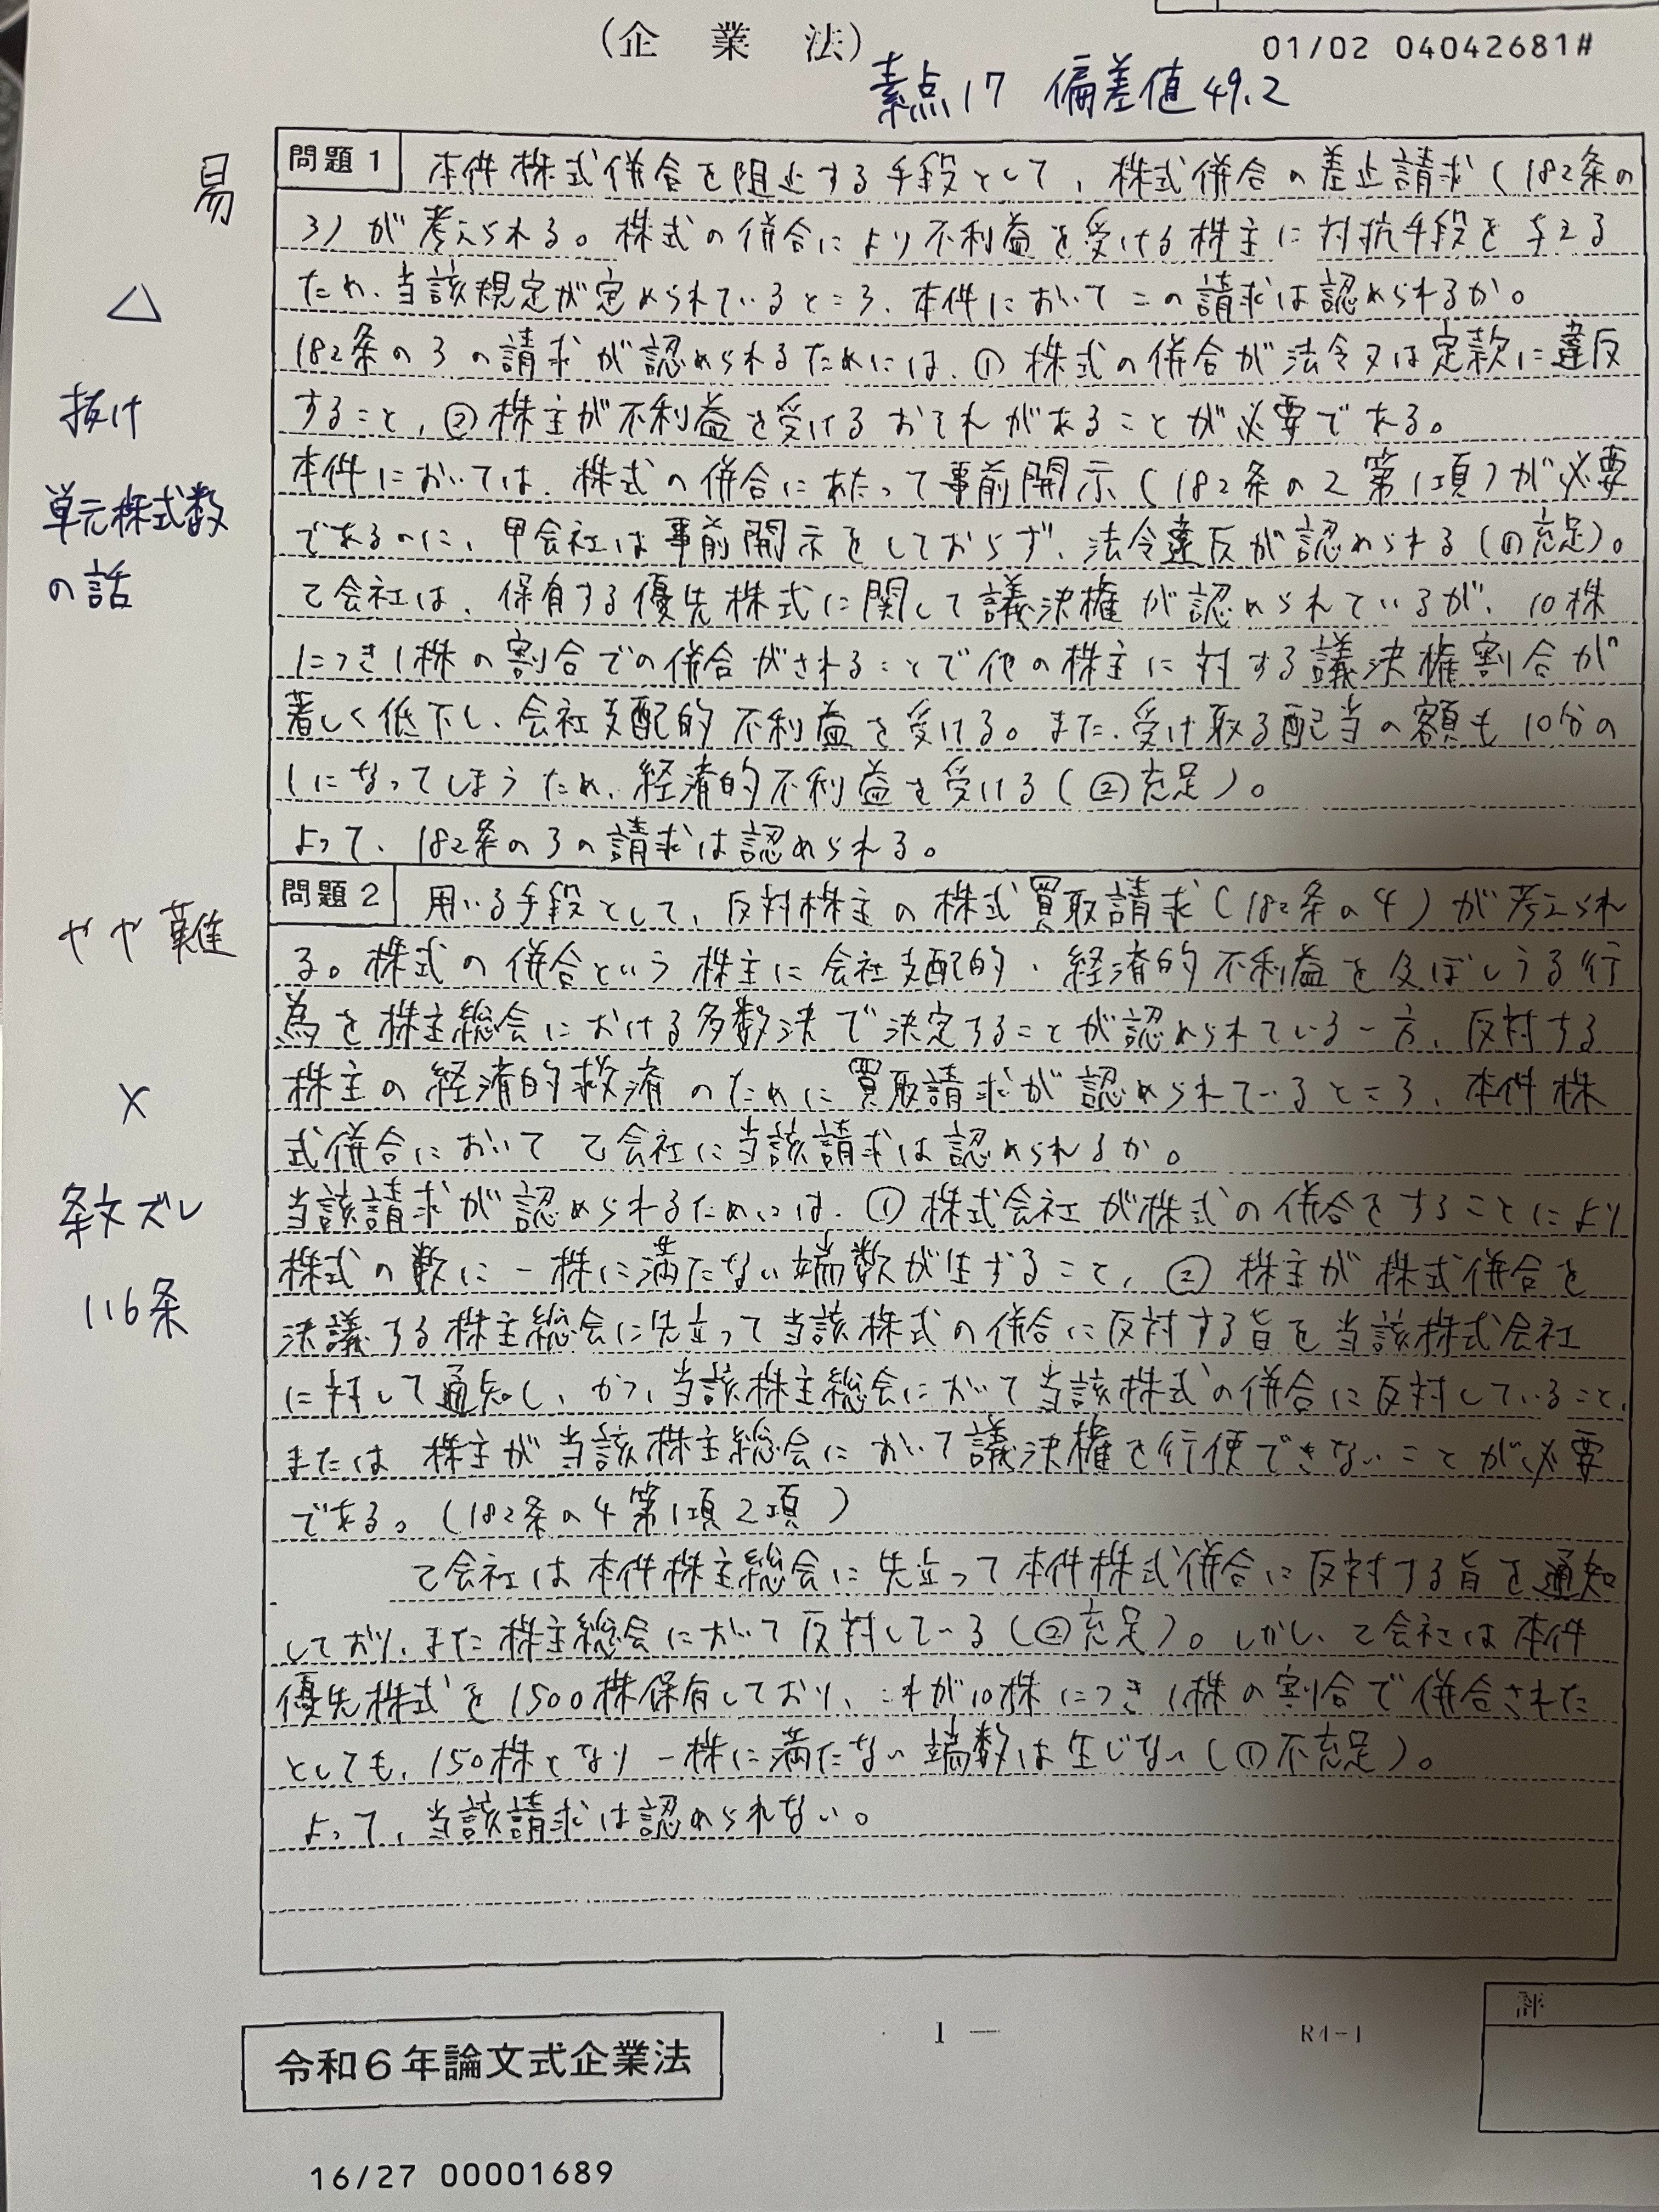 (企業法)
01/02 04042681#
素点17 偏差値49.2
易
△
抜け
単元株式数
の話
問題1 本件株式併合を阻止する手段として、株式併合の差止請求(182条の
3)が考えられる。株式の併合により不利益を受ける株主に対抗手段を与える
ため、当該規定が定められているところ、本件においてこの請求は認められるか。
182条の3の請求が認められるためには、①株式の併合が法令又は定款に違反
すること、②株主が不利益を受けるおそれがあることが必要である。
本件においては、株式の併合にあたって事前開示(182条の2第1項)が必要
であるのに、甲会社は事前開示をしておらず、法令違反が認められる(①充足)。
乙会社は、保有する優先株式に関して議決権が認められているが、10株
につき1株の割合での併合がされることで他の株主に対する議決権割合が
著しく低下し、会社支配的不利益を受ける。また、受け取る配当の額も10分の
1になってしまうため、経済的不利益を受ける(②充足)。
よって、182条の3の請求は認められる。
やや難
×
条文ズレ
116条
問題2 用いる手段として、反対株主の株式買取請求(182条の4)が考えられ
る。株式の併合という株主に会社支配的・経済的不利益を及ぼしうる行
為を株主総会における多数決で決定することが認められている一方、反対する
株主の経済的救済のために買取請求が認められているところ、本件株
式併合において乙会社に当該請求は認められるか。
当該請求が認められるためには、①株式会社が株式の併合をすることにより
株式の数に一株に満たない端数が生ずること、②株主が株式併合を
決議する株主総会に先立って当該株式の併合に反対する旨を当該株式会社
に対して通知し、かつ、当該株主総会において当該株式の併合に反対していること、
または株主が当該株主総会において議決権を行使できないことが必要
である。(182条の4第1項2項)
乙会社は本件株主総会に先立って本件株式併合に反対する旨を通知
しており、また株主総会において反対している(②充足)。しかし、乙会社は本件
優先株式を1500株保有しており、これが10株につき1株の割合で併合された
としても、150株となり一株に満たない端数は生じない(①不充足)。
よって、当該請求は認められない。
1 —
R4-1
評
令和6年論文式企業法
16/27 00001689